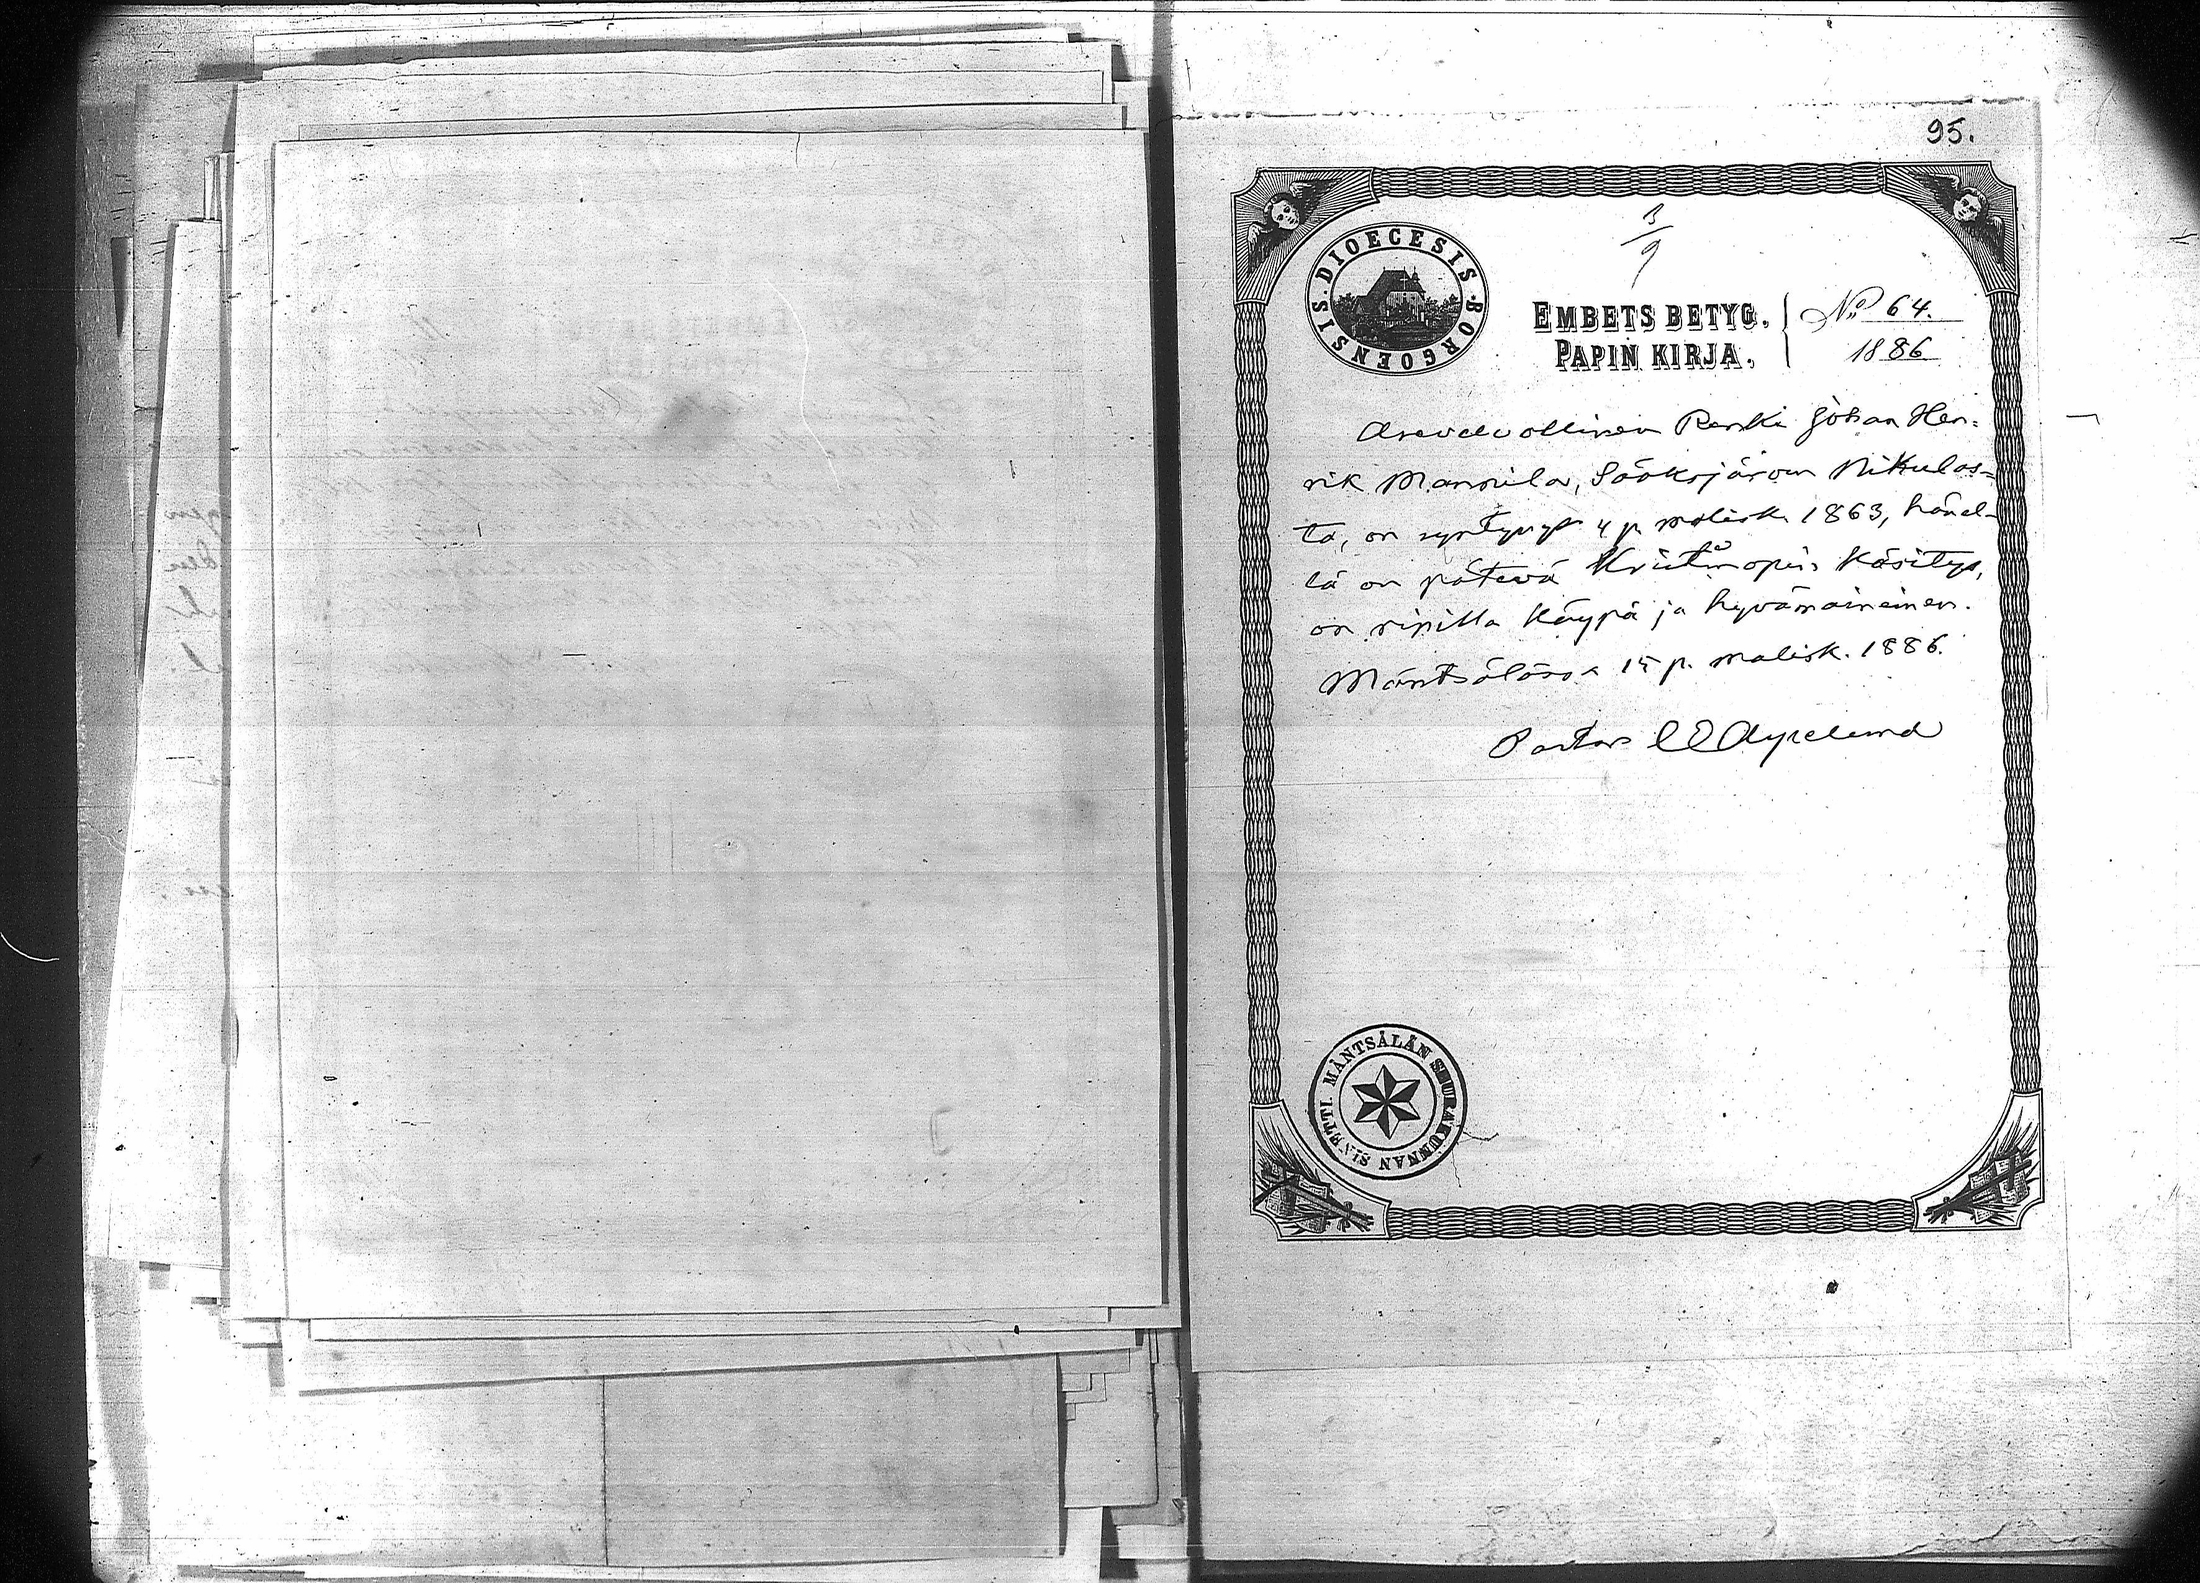 95.
3/9
DIOECESIS BORGOENSIS.
EMBETS BETYG. No 64.
PAPIN KIRJA. 1886
Arvoluollinen Renki Johan Hen=
rik Mannila, Sääksjärven Nikulas=
ta, on syntynyt 4 p. malisk. 1863, hänel=
lä on pätevä Kristinopin Käsitys,
on ripillä Käypä ja hyvämaineinen.
Mäntsälässä 15 p. malisk. 1886.
Pastor
MÄNTSÄLÄN SEURAKUNNAN SINETTI